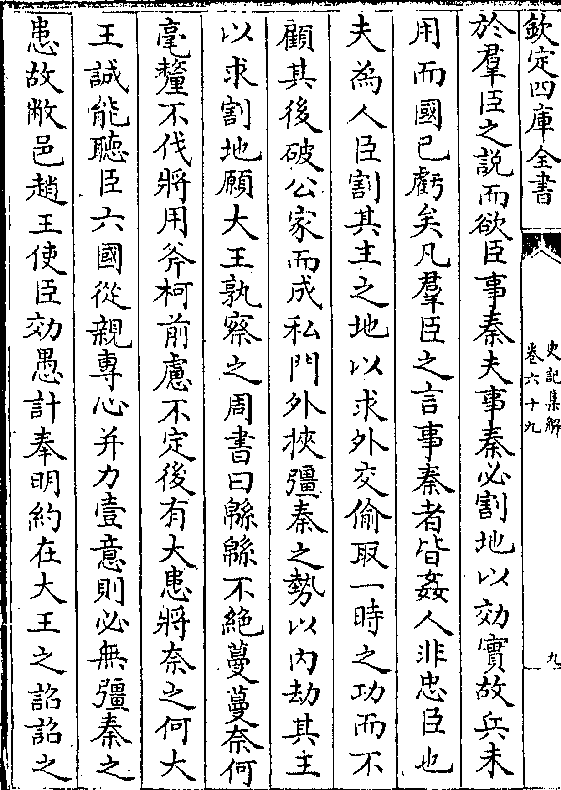 欽定四庫全書
史記集解
卷六十九
九
於羣臣之說而欲臣事秦夫事秦必割地以効實故兵未
用而國已虧矣凡羣臣之言事秦者皆姦人非忠臣也
夫為人臣割其主之地以求外交偷取一時之功而不
顧其後破公家而成私門外挾彊秦之勢以內劫其主
以求割地願大王孰察之周書曰緜緜不絶蔓蔓奈何
毫釐不伐將用斧柯前慮不定後有大患將奈之何大
王誠能聽臣六國從親專心并力壹意則必無彊秦之
患故敝邑趙王使臣効愚計奉明約在大王之詔詔之